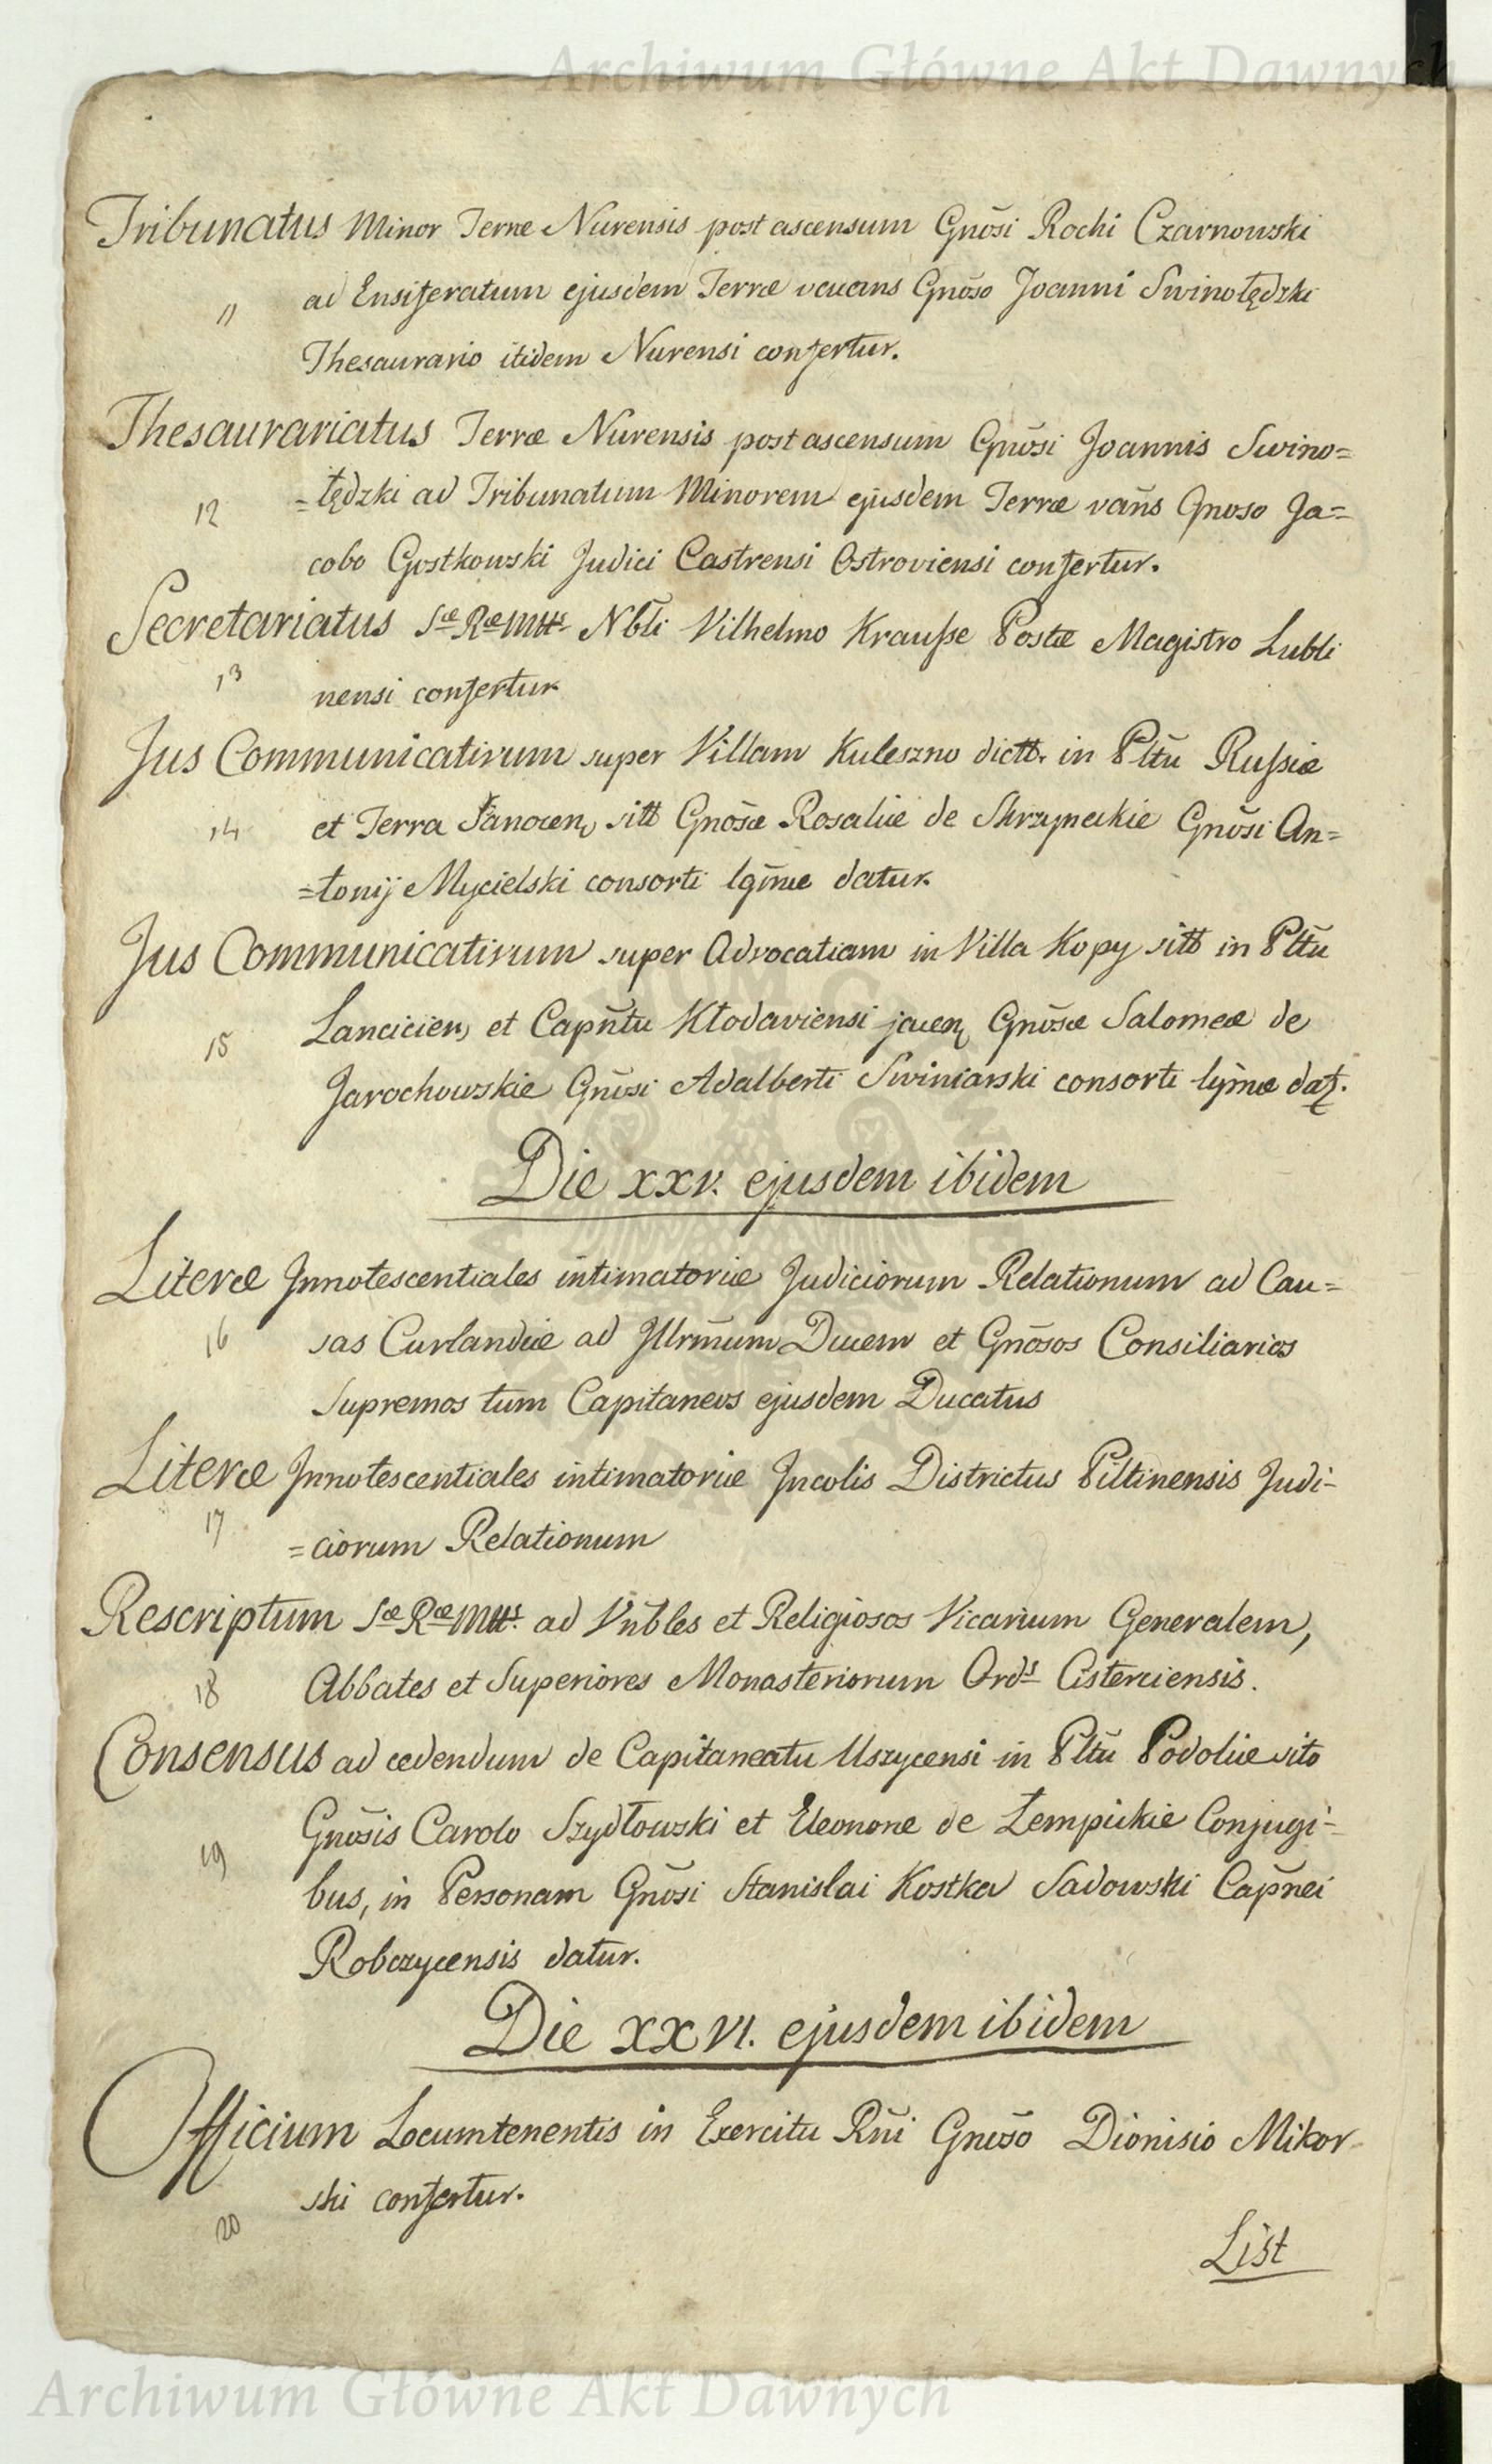 Archiwum Główne Akt Dawnych
Tribunatus Minor Terræ Nurensis post ascensum Gnōsi Rochi Czarnowski
11 ad Ensiferatum ejusdem Terræ vacans Gnōso Joanni Swinołędzki
Thesaurario itidem Nurensi confertur.
Thesaurariatus Terræ Nurensis post ascensum Gnōsi Joannis Swino=
12 =łędzki ad Tribunatum Minorem ejusdem Terræ vañs Gnoso Ja=
cobo Gostkowski Judici Castrensi Ostroviensi confertur.
Secretariatus Sæ Ræ Mttis Nbli Vilhelmo Krauſse Postæ Magistro Lubli
13 nensi confertur
Jus Communicativum super Villam Kuleszno dictt. in Pltū Ruſsiæ
14 et Terra Sanocen sitt Gnōsæ Rosaliæ de Skrzyneckie Gnōsi An=
=tonij Mycielski consorti lgīmæ datur.
Jus Communicativum super Advocatiam in Villa Kopy sitt in Pltū
15 Lancicien et Capñtu Kłodaviensi jacen Gnōsæ Salomeæ de
Jarochowskie Gnōsi Adalberti Swiniarski consorti lgīmæ dat.
Die XXV. ejusdem ibidem
Literæ Innotescentiales intimatoriæ Judiciorum Relationum ad Cau=
16 sas Curlandiæ ad Illrm̄um Ducem et Gnōsos Consiliarios
Supremos tum Capitaneos ejusdem Ducatus
Literæ Innotescentiales intimatoriæ Incolis Districtus Piltinensis Judi-
17 =ciorum Relationum
Rescriptum Sæ Ræ Mttis. ad Vnbles et Religiosos Vicarium Generalem,
18 Abbates et Superiores Monasteriorum Ords Cisterciensis.
Consensus ad cedendum de Capitaneatu Uszycensi in Pltū Podoliæ sito
19 Gnōsis Carolo Szydłowski et Eleonoræ de Łempickie Conjugi-
bus, in Personam Gnōsi Stanislai Kostka Sadowski Capñei
Robczycensis datur.
Die XXVI. ejusdem ibidem
Officium Locumtenentis in Exercitu Rñi Gnōso Dionisio Mikor
20 ski confertur.
List
Archiwum Główne Akt Dawnych